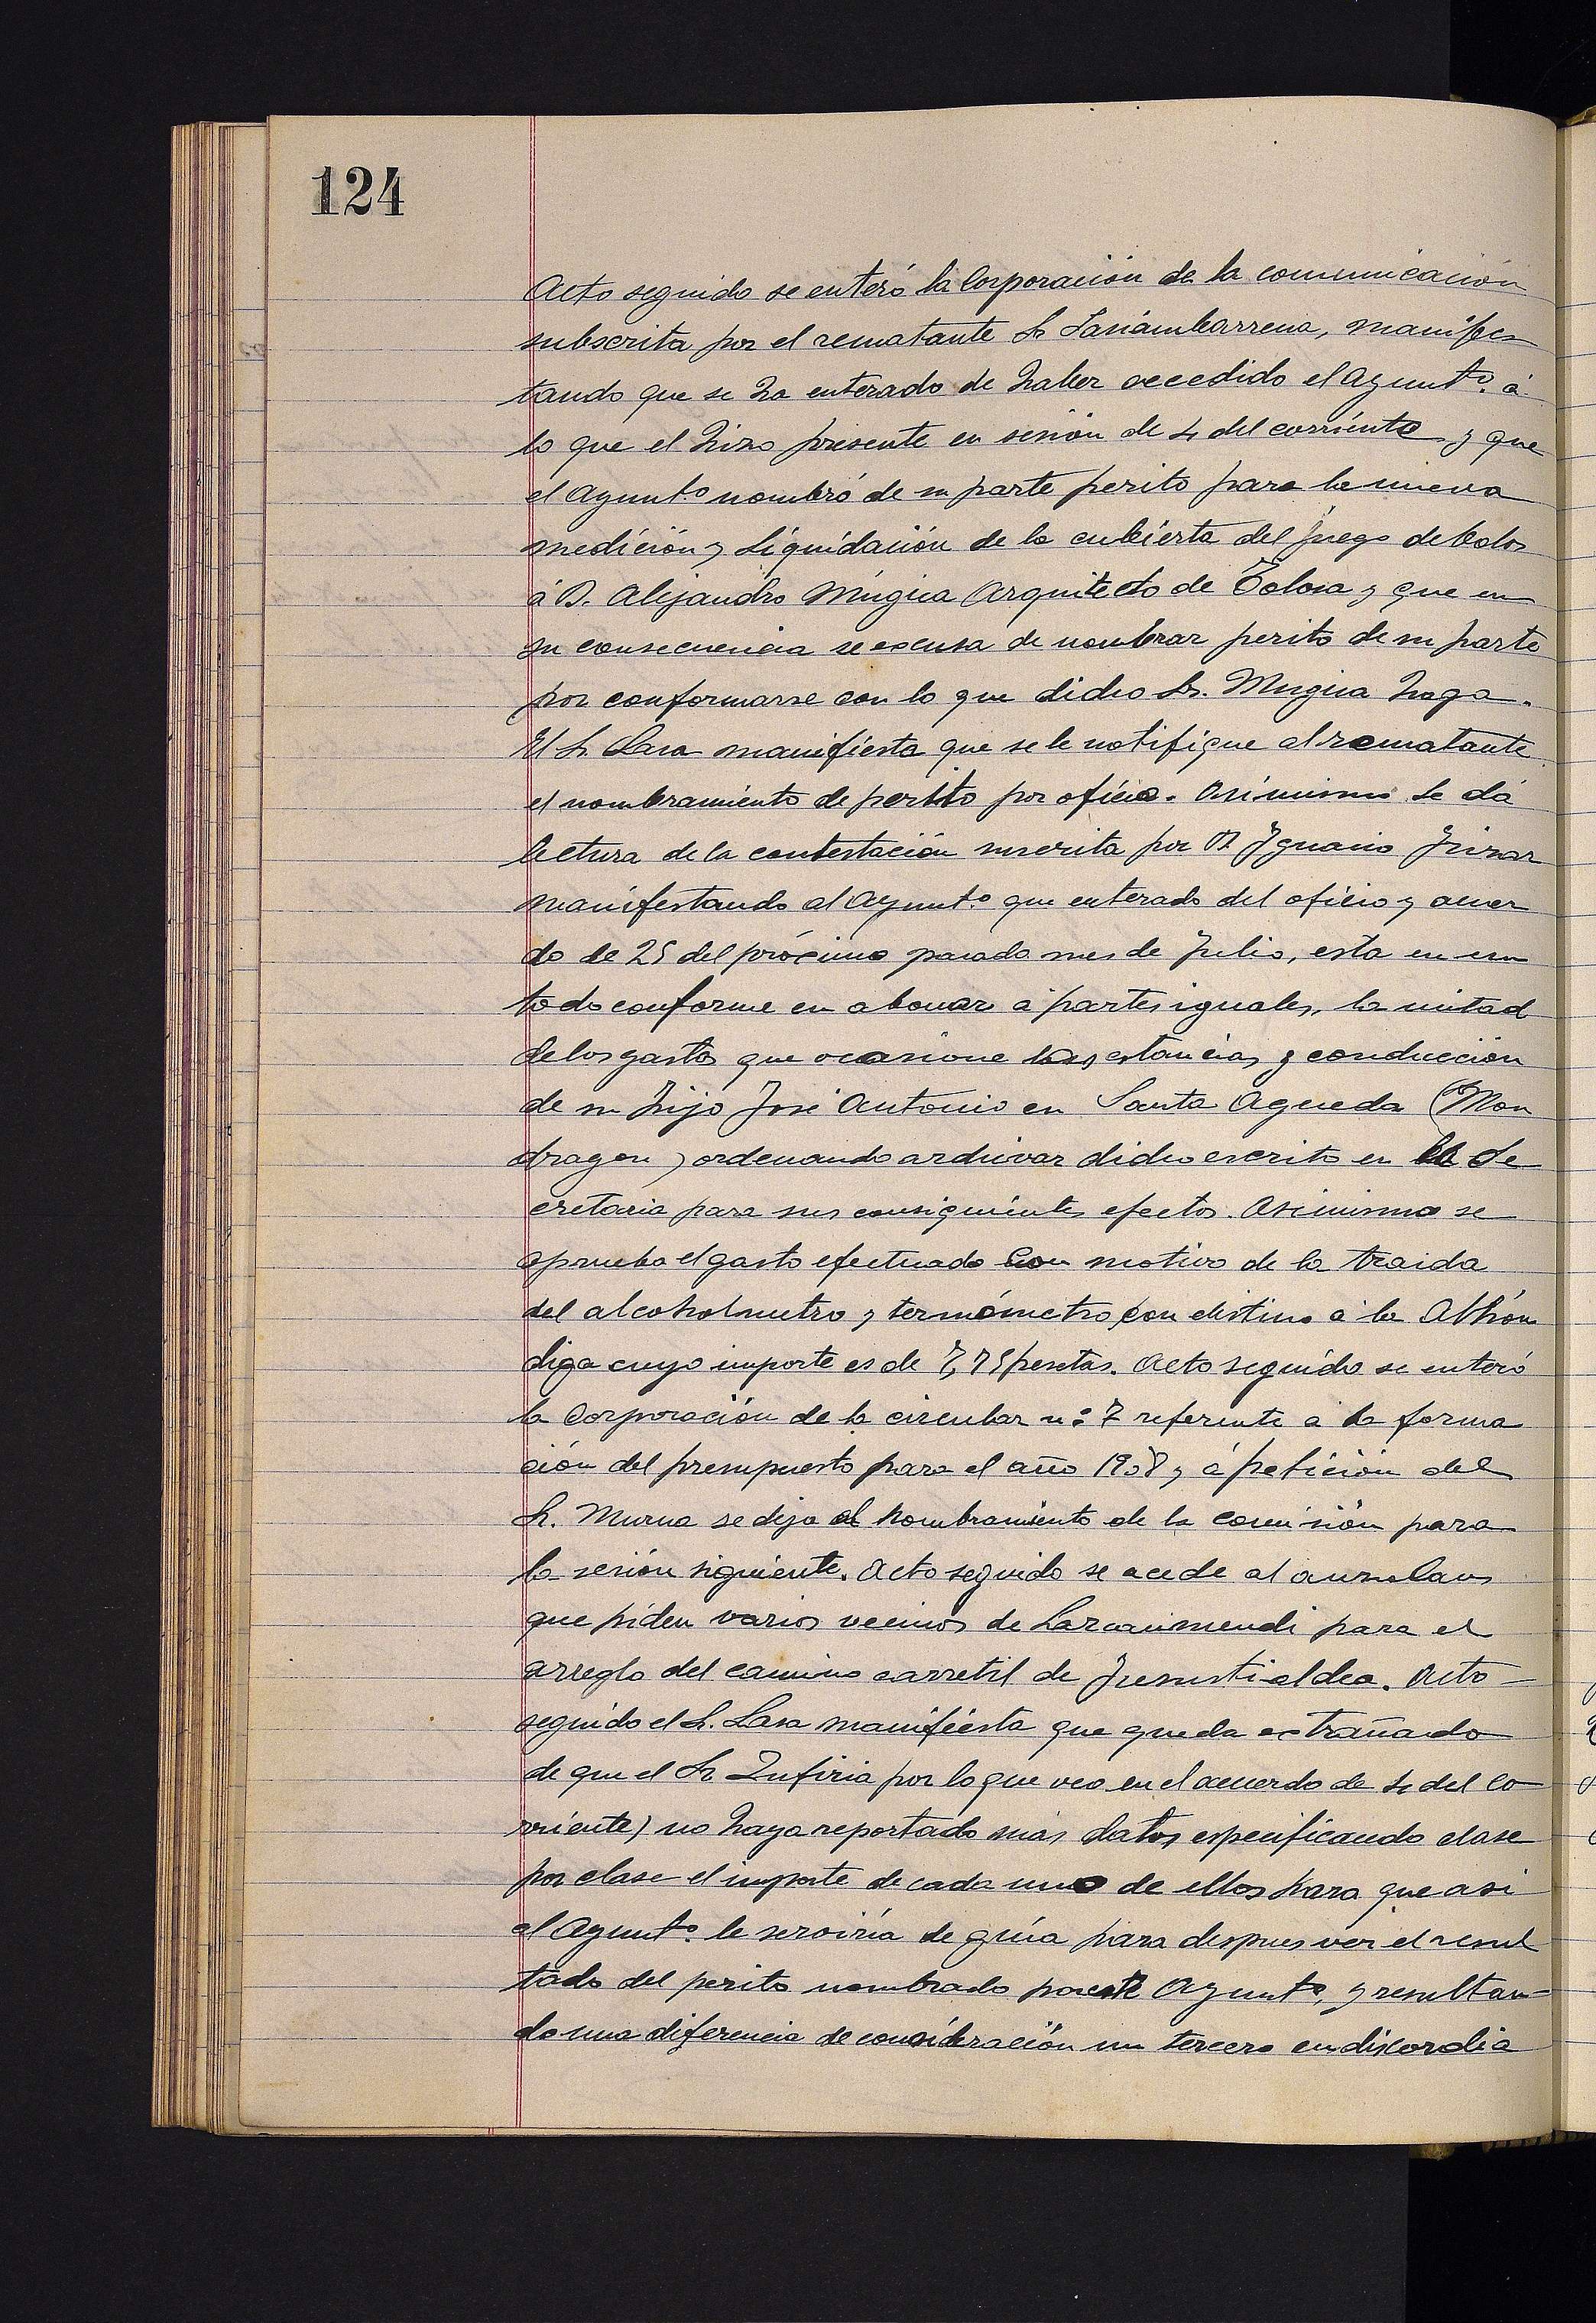 124
Acto seguido se enteró la Corporación de la comunicación
subscrita por el rematante Sr Sasiambarrena, manifes
tando que se ha enterado de haber accedido el Ayunt.º á
lo que el hizo presente en sesión de 4 del corriente y que
el Ayunt.º nombró de su parte perito para la nueva
medición y liquidación de la cubierta del juego de bolos
á D. Alejandro Múgica Arquitecto de Tolosa y que en
su consecuencia se excusa de nombrar perito de su parte
por conformarse con lo que dicho Sr. Mugica haga.
El Sr Lasa manifiesta que se le notifique al rematante
el nombramiento de perito por oficio. Asimismo se dá
lectura de la contestación suscrita por D Ignacio
manifestando al Ayunt.º que enterado del oficio y acuer
do de 25 del próximo pasado mes de Julio, esta en un
todo conforme en abonar á partes iguales, la mitad
de los gastos que ocasione las estancias y conducción
de su hijo José Antonio en Santa Agueda (Mon
dragon) ordenando archivar dicho escrito en la Se
cretaria para sus consiguientes efectos. Asimismo se
aprueba el gasto efectuado con motivo de la traida
del alcoholmetro y termómetro con destino á la Alhón
diga cuyo importe es de 7,75 pesetas. Acto seguido se enteró
la Corporación de la circular n.º 7 referente á la forma
ción del presupuesto para el año 1908 y á petición del
Sr. Murua se dejo el nombramiento de la comisión para
la sesión siguiente. Acto seguido se acede al auzolan
que piden varios vecinos de Larcarimendi para el
arreglo del camino carretil de Jesusti-aldea. Acto
seguido el Sr. Lasa manifiesta que queda extrañado
de que el Sr Zufiria por lo que veo en el acuerdo de 4 del co
rriente) no haya reportado más datos especificando clase
por clase el importe de cada uno de ellos para que asi
al Ayunt.º le serviría de guía para despues ver el resul
tado del perito nombrado por este Ayunt.º, y resultan-
do una diferencia de consideración un tercero en discordia